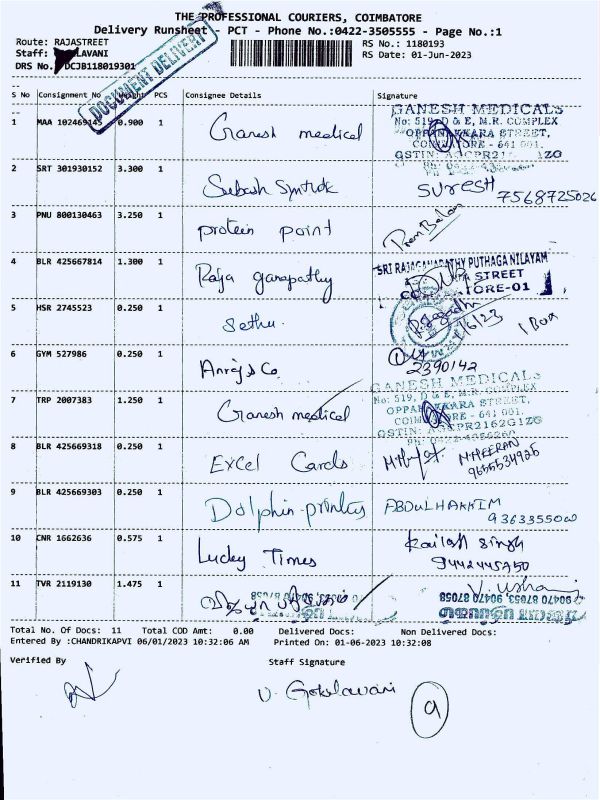 THE PROFESSIONAL COURIERS, COIMBATORE
Delivery Runsheet - PCT - Phone No.:0422-3505555 - Page No.:1
Route: RAJASTREET
RS No.: 1180193
Staff: LAVANI
RS Date: 01-Jun-2023
DRS No. DCJB118019301
DOCUMENT DELIVERY
S No Consignment No Weight PCS Consignee Details Signature
1 MAA 102469145 0.900 1 Ganesh medical
GANESH MEDICALS
No: 519, D & E, M.R. COMPLEX
OPPANAKKARA STREET,
COIMBATORE - 641 001.
2 SRT 301930152 3.300 1 Subash SURESH 7568725026
3 PNU 800130463 3.250 1 protein point
4 BLR 425667814 1.300 1 Raja ganapathy
SRI RAJAGANAPATHY PUTHAGA NILAYAM
STREET
ORE-01
5 HSR 2745523 0.250 1 Sethu. /6/23 1 Box
6 GYM 527986 0.250 1 & Co. 2390142
7 TRP 2007383 1.250 1 Ganesh medical
GANESH MEDICALS
No: 519, D & E, M.R. COMPLEX
OPPANAKKARA STREET,
COIMBATORE - 641 001.
GSTIN:
8 BLR 425669318 0.250 1 Excel Cards MTHEERAN
9655534925
9 BLR 425669303 0.250 1 Dolphin-printers ABDULHAKKIM
10 CNR 1662636 0.575 1 Lucky Times Kailash Singh
9442445750
11 TVR 2119130 1.475 1 V. Usha
90470 87058
Total No. Of Docs: 11 Total COD Amt: 0.00 Delivered Docs: Non Delivered Docs:
Entered By :CHANDRIKAPVI 06/01/2023 10:32:06 AM Printed On: 01-06-2023 10:32:08
Verified By Staff Signature
V. Gokilavani
9